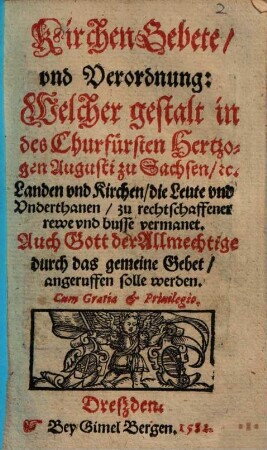 2
Kirchen Gebete/
vnd Verordnung:
Welcher gestalt in
des Churfürsten Hertzo-
gen Augusti zu Sachsen/ ꝛc.
Landen vnd Kirchen/die Leute vnd
Vnderthanen / zu rechtschaffener
rewe vnd busse vermanet.
Auch Gott der Allmechtige
durch das gemeine Gebet/
angeruffen solle werden.
Cum Gratia & Priuilegio.
Dreßzden.
Bey Gimel Bergen. 1582.